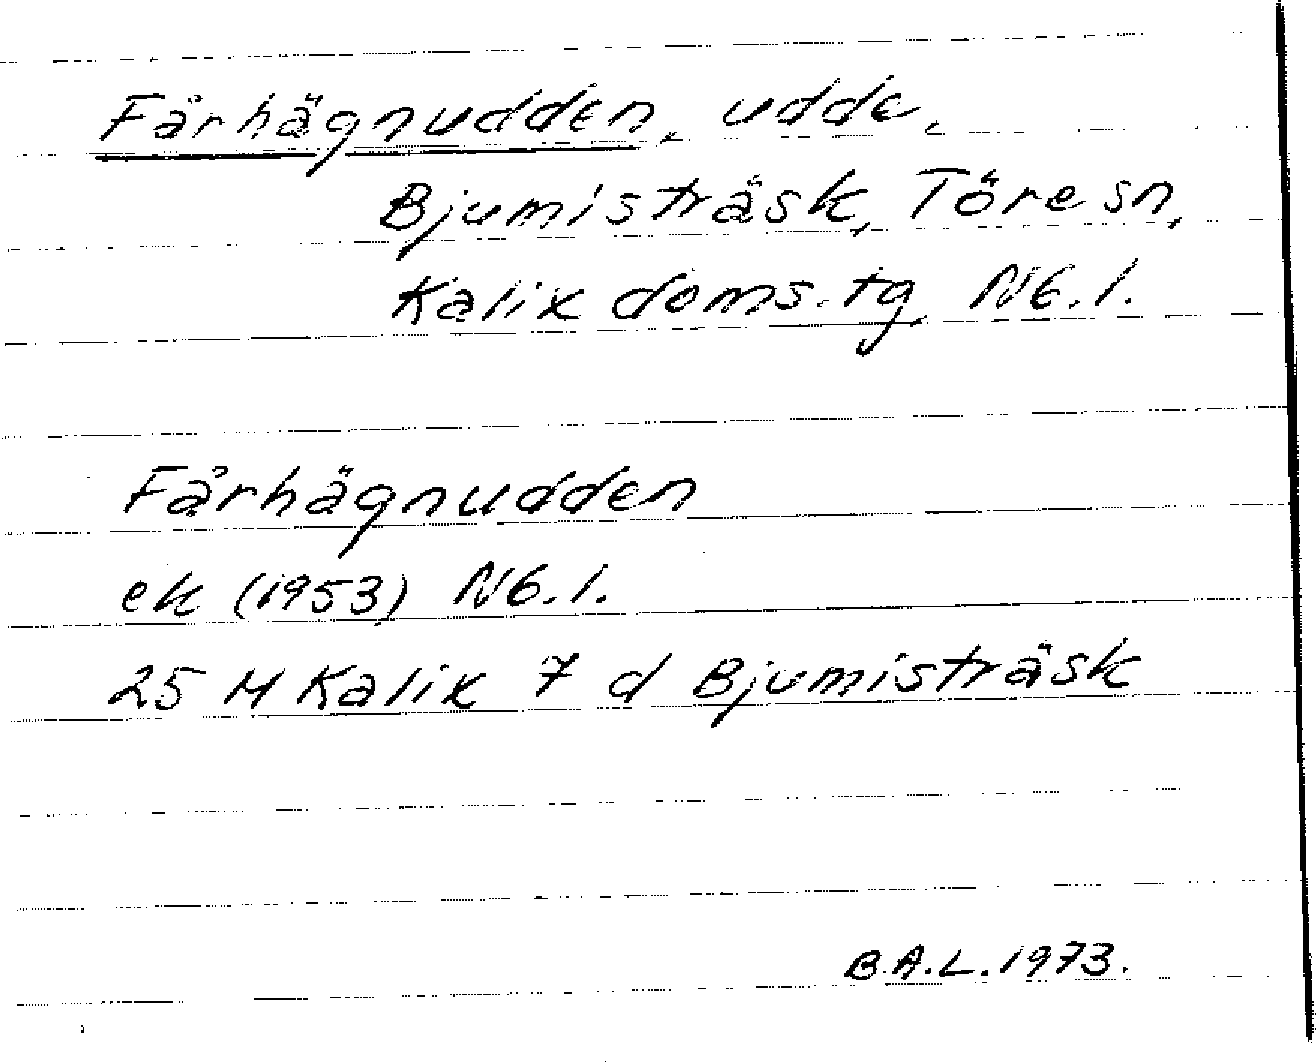 Fårhägnudden, udde,
Bjumisträsk, Töre sn,
Kalix doms.tg, Nb.l.
Fårhägnudden
ek (1953) Nb.l.
25 M Kalix 7 d Bjumisträsk
B.A.L. 1973.